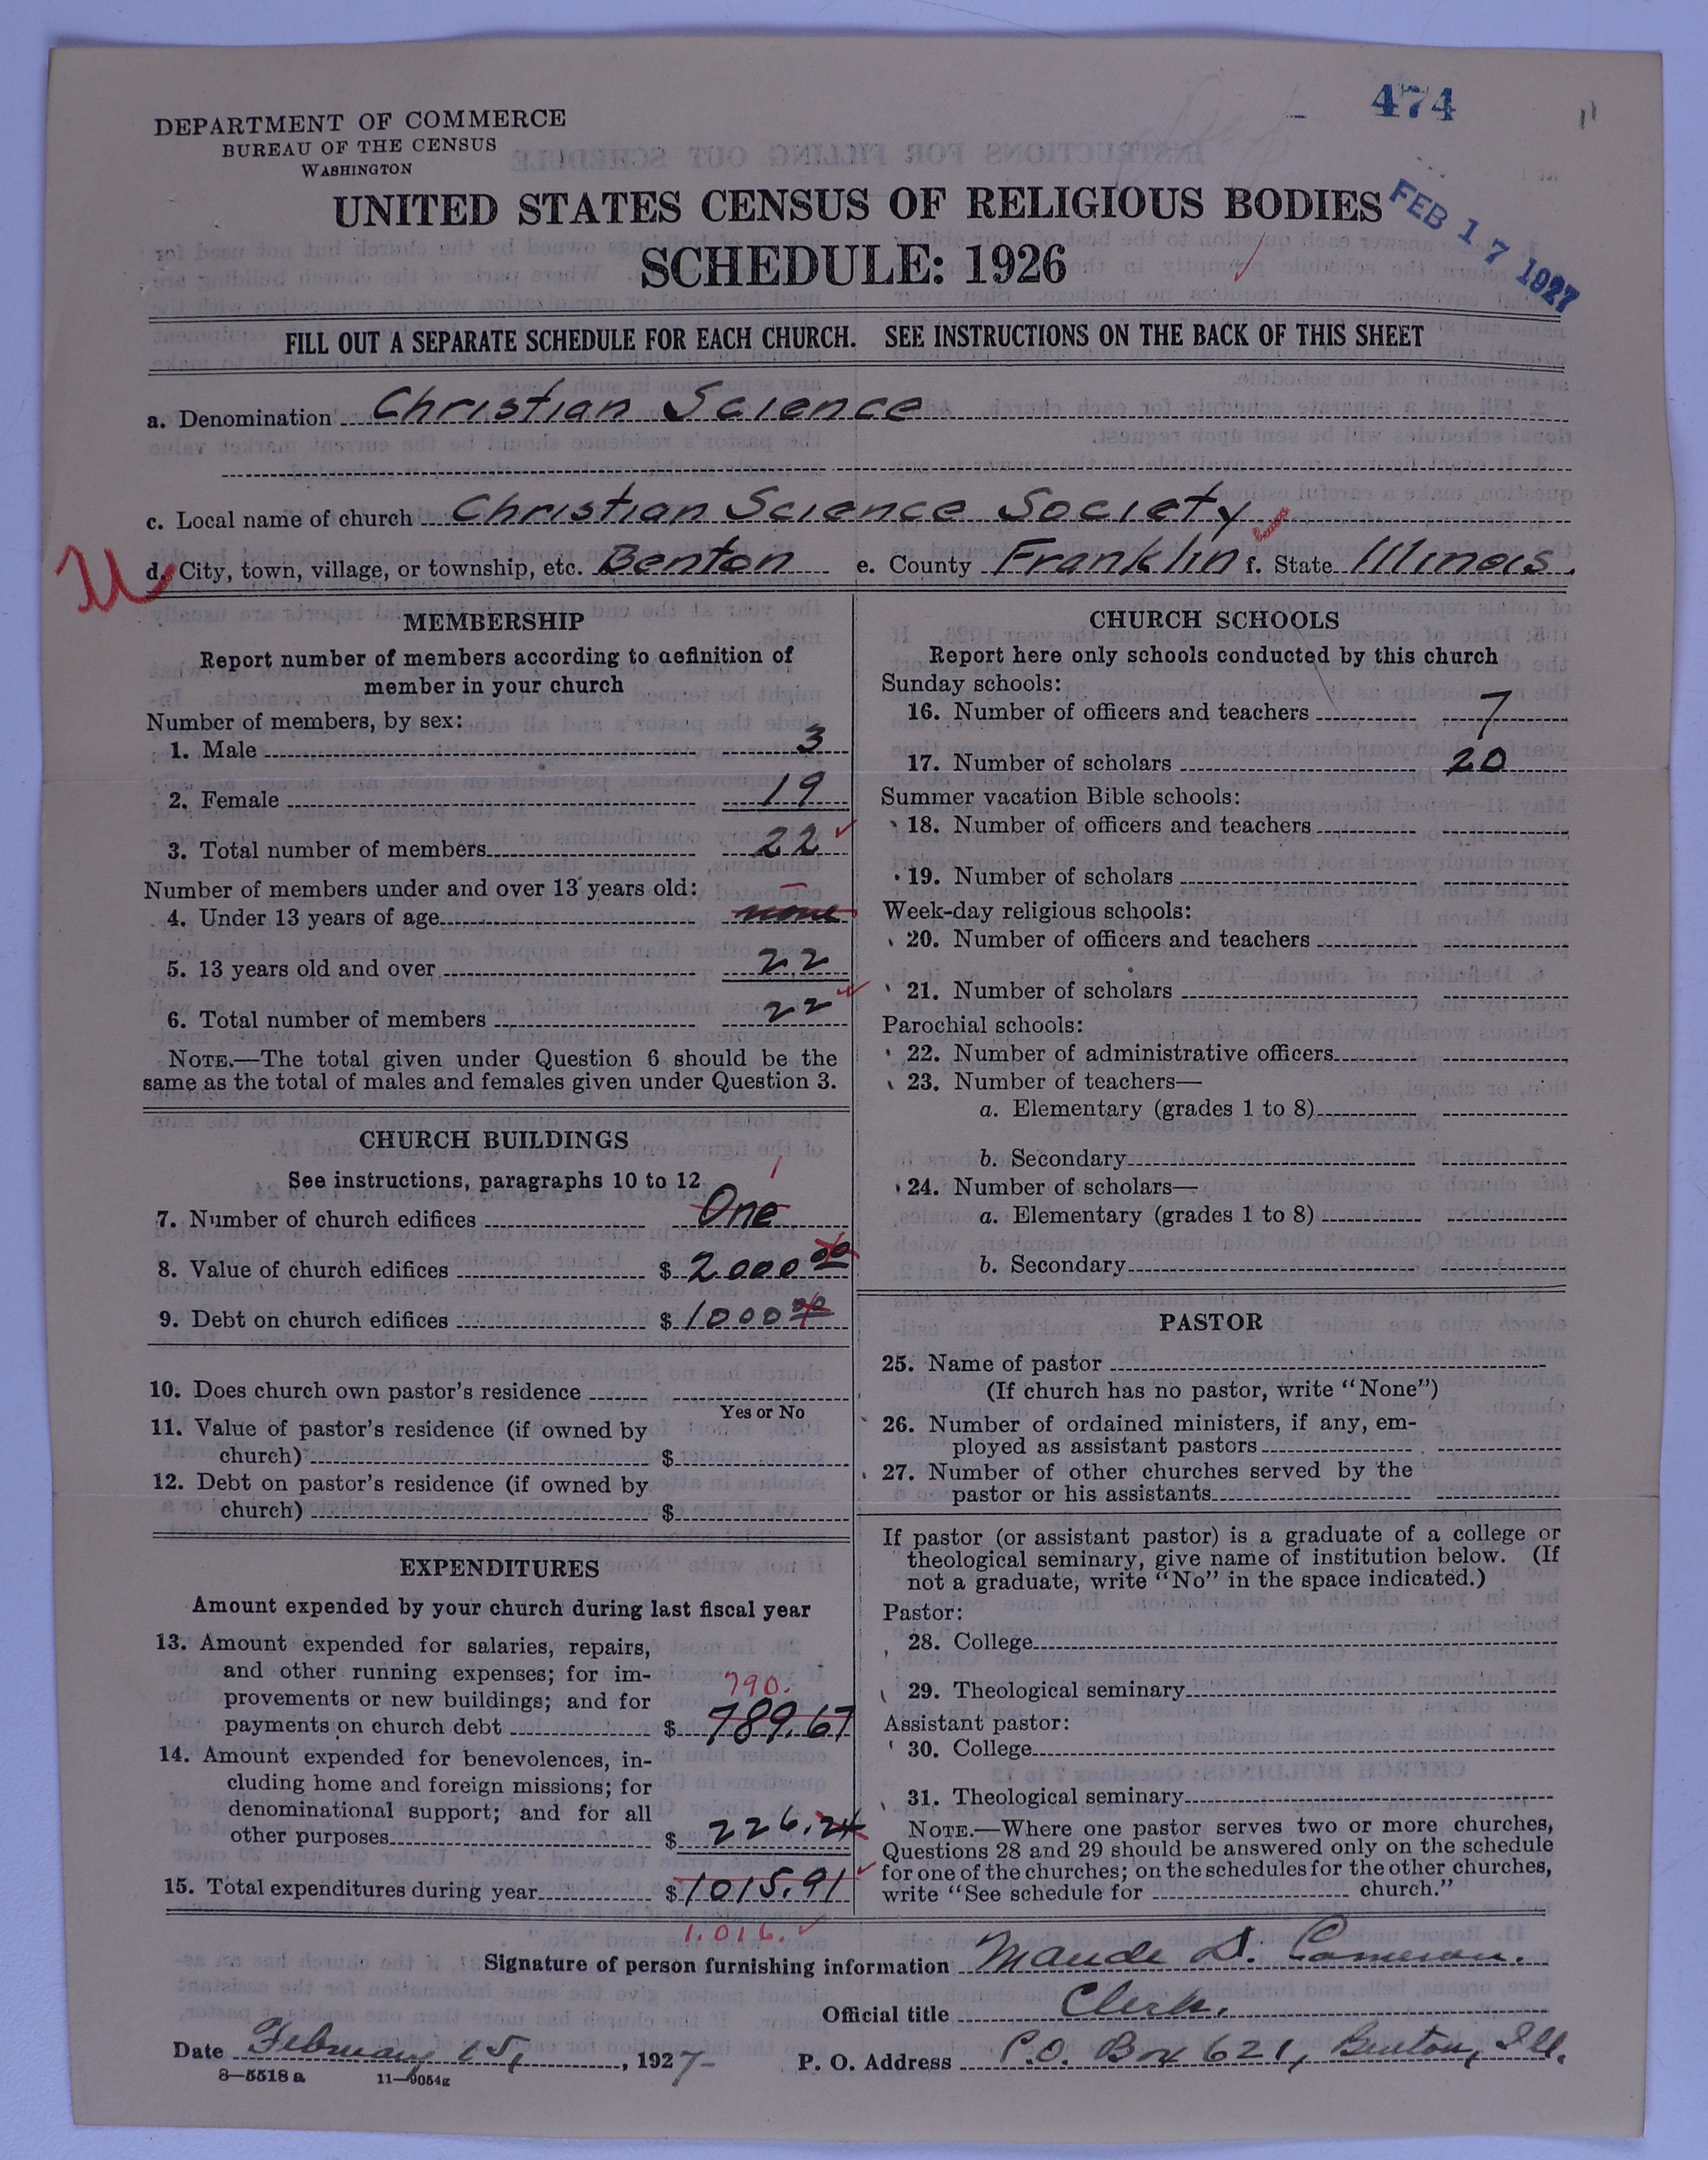 474
DEPARTMENT OF COMMERCE
BUREAU OF THE CENSUS
WASHINGTON
UNITED STATES CENSUS OF RELIGIOUS BODIES
SCHEDULE: 1926
FEB 17 1927
FILL OUT A SEPARATE SCHEDULE FOR EACH CHURCH. SEE INSTRUCTIONS ON THE BACK OF THIS SHEET
a. Denomination Christian Science
c. Local name of church Christian Science Society
d. City, town, village, or township, etc. Benton e. County Franklin f. State Illinois.
MEMBERSHIP
Report number of members according to definition of
member in your church
Number of members, by sex:
1. Male 3
2. Female 19
3. Total number of members 22
Number of members under and over 13 years old:
4. Under 13 years of age none
5. 13 years old and over 22
6. Total number of members 22
NOTE.—The total given under Question 6 should be the
same as the total of males and females given under Question 3.
CHURCH BUILDINGS
See instructions, paragraphs 10 to 12
1
7. Number of church edifices One
8. Value of church edifices $ 2000 00
9. Debt on church edifices $ 1000 00
10. Does church own pastor's residence
Yes or No
11. Value of pastor's residence (if owned by
church) $
12. Debt on pastor's residence (if owned by
church) $
EXPENDITURES
Amount expended by your church during last fiscal year
13. Amount expended for salaries, repairs,
and other running expenses; for im-
790.
provements or new buildings; and for
payments on church debt $ 789.67
14. Amount expended for benevolences, in-
cluding home and foreign missions; for
denominational support; and for all
other purposes $ 226.24
15. Total expenditures during year $ 1015.91
1.016.
CHURCH SCHOOLS
Report here only schools conducted by this church
Sunday schools:
16. Number of officers and teachers 7
17. Number of scholars 20
Summer vacation Bible schools:
18. Number of officers and teachers
19. Number of scholars
Week-day religious schools:
20. Number of officers and teachers
21. Number of scholars
Parochial schools:
22. Number of administrative officers
23. Number of teachers—
a. Elementary (grades 1 to 8)
b. Secondary
24. Number of scholars—
a. Elementary (grades 1 to 8)
b. Secondary
PASTOR
25. Name of pastor
(If church has no pastor, write "None")
26. Number of ordained ministers, if any, em-
ployed as assistant pastors
27. Number of other churches served by the
pastor or his assistants
If pastor (or assistant pastor) is a graduate of a college or
theological seminary, give name of institution below. (If
not a graduate, write "No" in the space indicated.)
Pastor:
28. College
29. Theological seminary
Assistant pastor:
30. College
31. Theological seminary
NOTE.—Where one pastor serves two or more churches,
Questions 28 and 29 should be answered only on the schedule
for one of the churches; on the schedules for the other churches,
write "See schedule for church."
Signature of person furnishing information Maude D. Cameron.
Official title Clerk.
Date February 15, 1927 P. O. Address P.O. Box 621, Benton, Ill.
8—5518 a 11—9054g